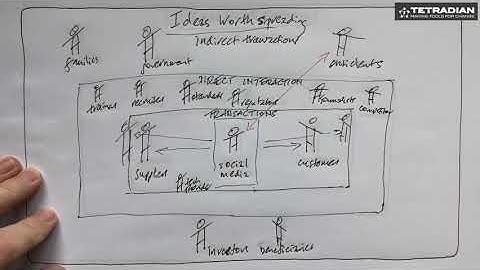 TETRADIAN
MAKING TOOLS FOR CHANGE
Ideas Worth Spreading
indirect transactions
families
government
anticlients
DIRECT INTERACTION
trainers
recruiters
attendees
regulators
journalists
competitor
TRANSACTIONS
supplier
social
media
customer
tech
investors
beneficiaries